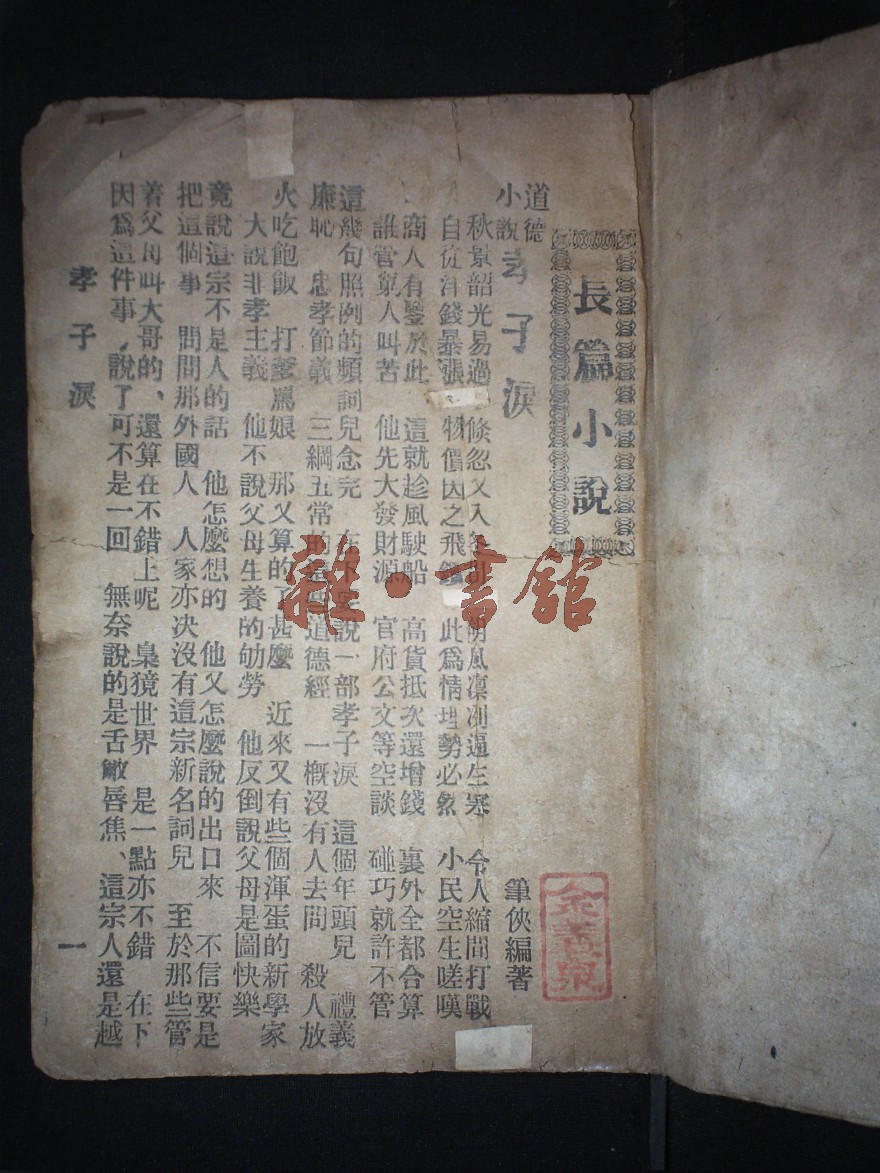 長篇小說
道德
小說
孝子淚
筆俠編著
秋景韶光易過 倏忽又入 風凛冽逼生寒 令人縮間打戰
自從洋錢暴漲 物價因之飛 此爲情理勢必然 小民空生嗟嘆
商人有鑒於此 這就趁風駛船 高貨抵次還增錢 裏外全都合算
誰管窮人叫苦 他先大發財源 官府公文等空談 碰巧就許不管
這幾句照例的頻詞兒念完 在下 說一部孝子淚 這個年頭兒 禮義
廉恥 忠孝節義 三綱五常的 道德經 一概沒有人去問 殺人放
火吃飽飯 打爹罵娘 那又算的了甚麼 近來又有些個渾蛋的新學家
大說非孝主義 他不說父母生養的劬勞 他反倒說父母是圖快樂
竟說這宗不是人的話 他怎麼想的 他又怎麼說的出口來 不信要是
把這個事 問問那外國人 人家亦決沒有這宗新名詞兒 至於那些管
着父母叫大哥的、還算在不錯上呢 梟獍世界 是一點亦不錯 在下
因爲這件事、說了可不是一回 無奈說的是舌敝唇焦、這宗人還是越
孝子淚
一
雜·書館